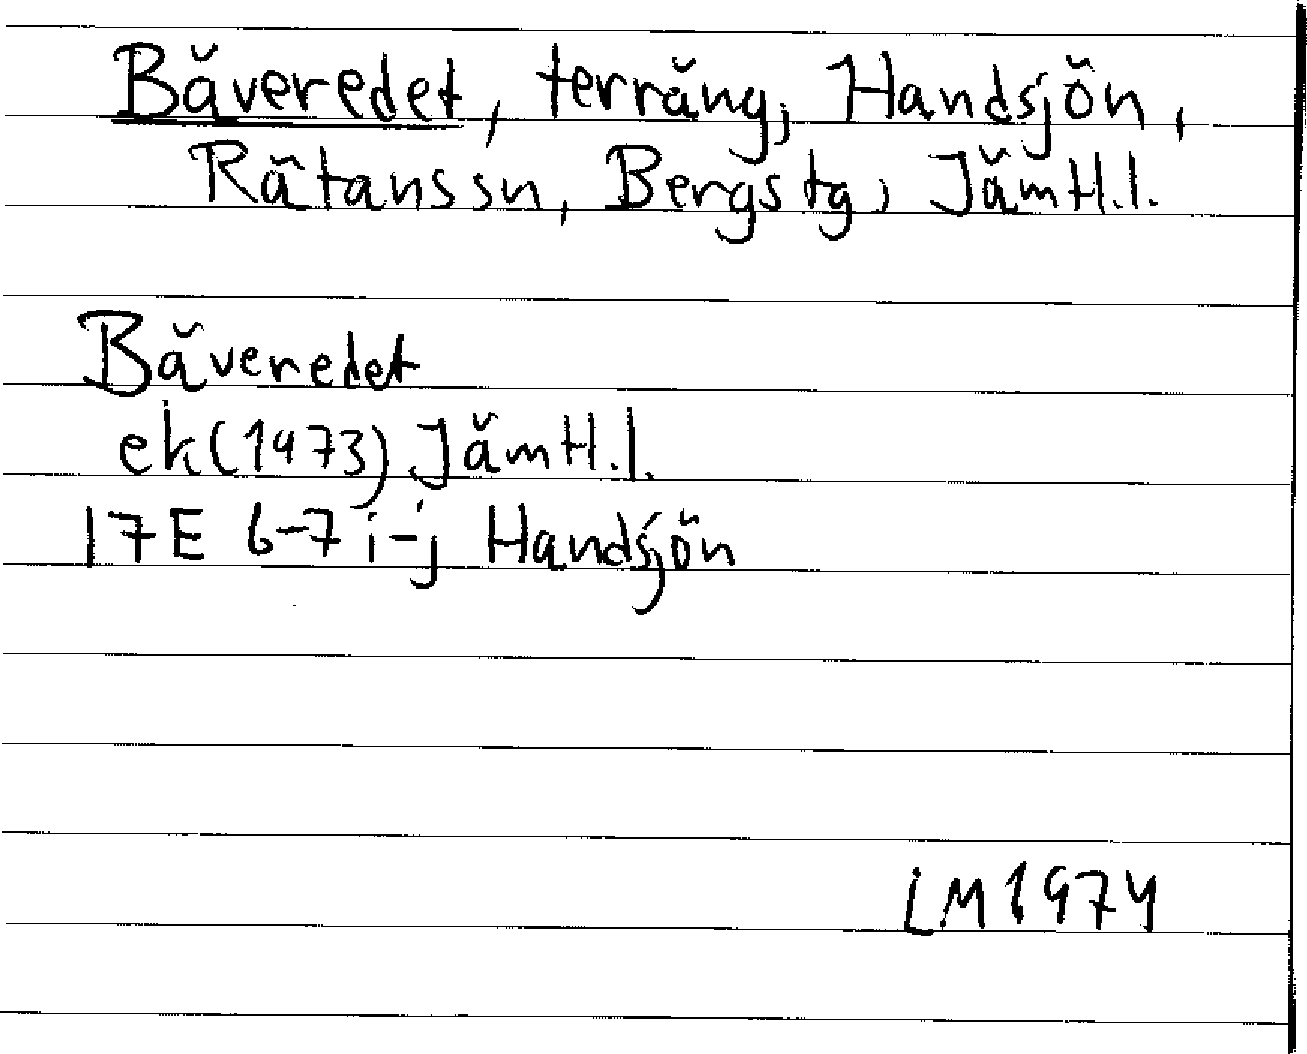 Bäveredet, terräng, Handsjön,
Rätanssn, Bergstg, Jämtl.l.
Bäveredet
ek(1973) Jämtl.l.
17E 6-7 i-j Handsjön
LM 1974